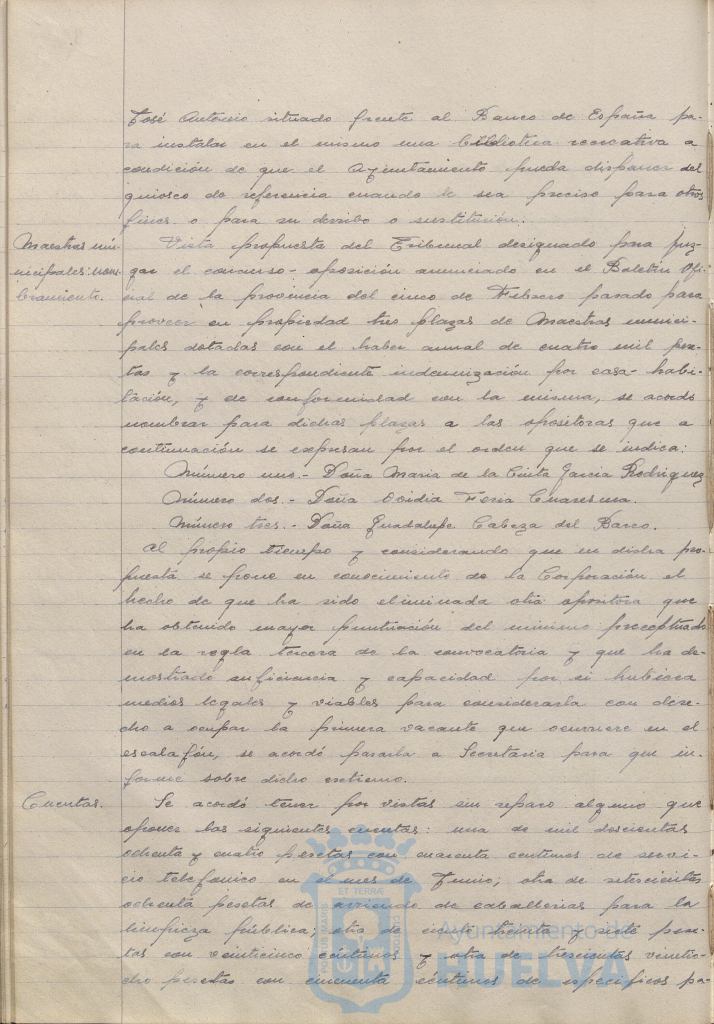 José Antonio situado frente al Banco de España pa-
ra instalar en el mismo una biblioteca recreativa a
condición de que el Ayuntamiento pueda disponer del
quiosco de referencia cuando le sea preciso para otros
fines o para su derribo o sustitución.
Maestras mu-
nicipales: nom-
bramiento.
Vista propuesta del Tribunal designado para juz-
gar el concurso-oposición anunciado en el Boletín Ofi-
cial de la provincia del cinco de Febrero pasado para
proveer en propiedad tres plazas de Maestras munici-
pales dotadas con el haber anual de cuatro mil pese-
tas y la correspondiente indemnización por casa-habi-
tación, y de conformidad con la misma, se acordó
nombrar para dichas plazas a las opositoras que a
continuación se expresan por el orden que se indica:
Número uno.- Doña Maria de la Cinta Garcia Rodriguez
Número dos.- Doña Ovidia Foria Cuaresma.
Número tres.- Doña Guadalupe Cabeza del Barco.
Al propio tiempo y considerando que en dicha pro-
puesta se pone en conocimiento de la Corporación el
hecho de que ha sido eliminada otra opositora que
ha obtenido mayor puntuación del mínimo preceptuado
en la regla tercera de la convocatoria y que ha de-
mostrado suficiencia y capacidad por si hubiera
medios legales y viables para considerarla con dere-
cho a ocupar la primera vacante que ocurriere en el
escalafón, se acordó pasarla a Secretaria para que in-
forme sobre dicho extremo.
Cuentas.
Se acordó tener por vistas sin reparo alguno que
oponer las siguientes cuentas: una de mil doscientas
ochenta y cuatro pesetas con cuarenta centimos de servi-
cio telefónico en el mes de Junio; otra de setecientas
ochenta pesetas de arriendo de caballerias para la
limpieza pública; otra de ciento treinta y siete pese-
tas con veinticinco centimos y otra de trescientas veintio-
cho pesetas con cincuenta centimos de especificos pa-
PORTUS MARIS
ET TERRÆ
CUSTODIA
Ayuntamiento de
HUELVA